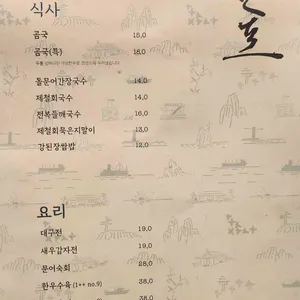 식사
곰국 18,0
곰국(특) 18,0
돌문어간장국수 14,0
제철회국수 14,0
전복들깨국수 16,0
제철회묵은지말이 13,0
강된장쌈밥 12,0
요리
대구전 19,0
새우감자전 19,0
문어숙회 28,0
한우수육 (1++ no.9) 38,0
38,0